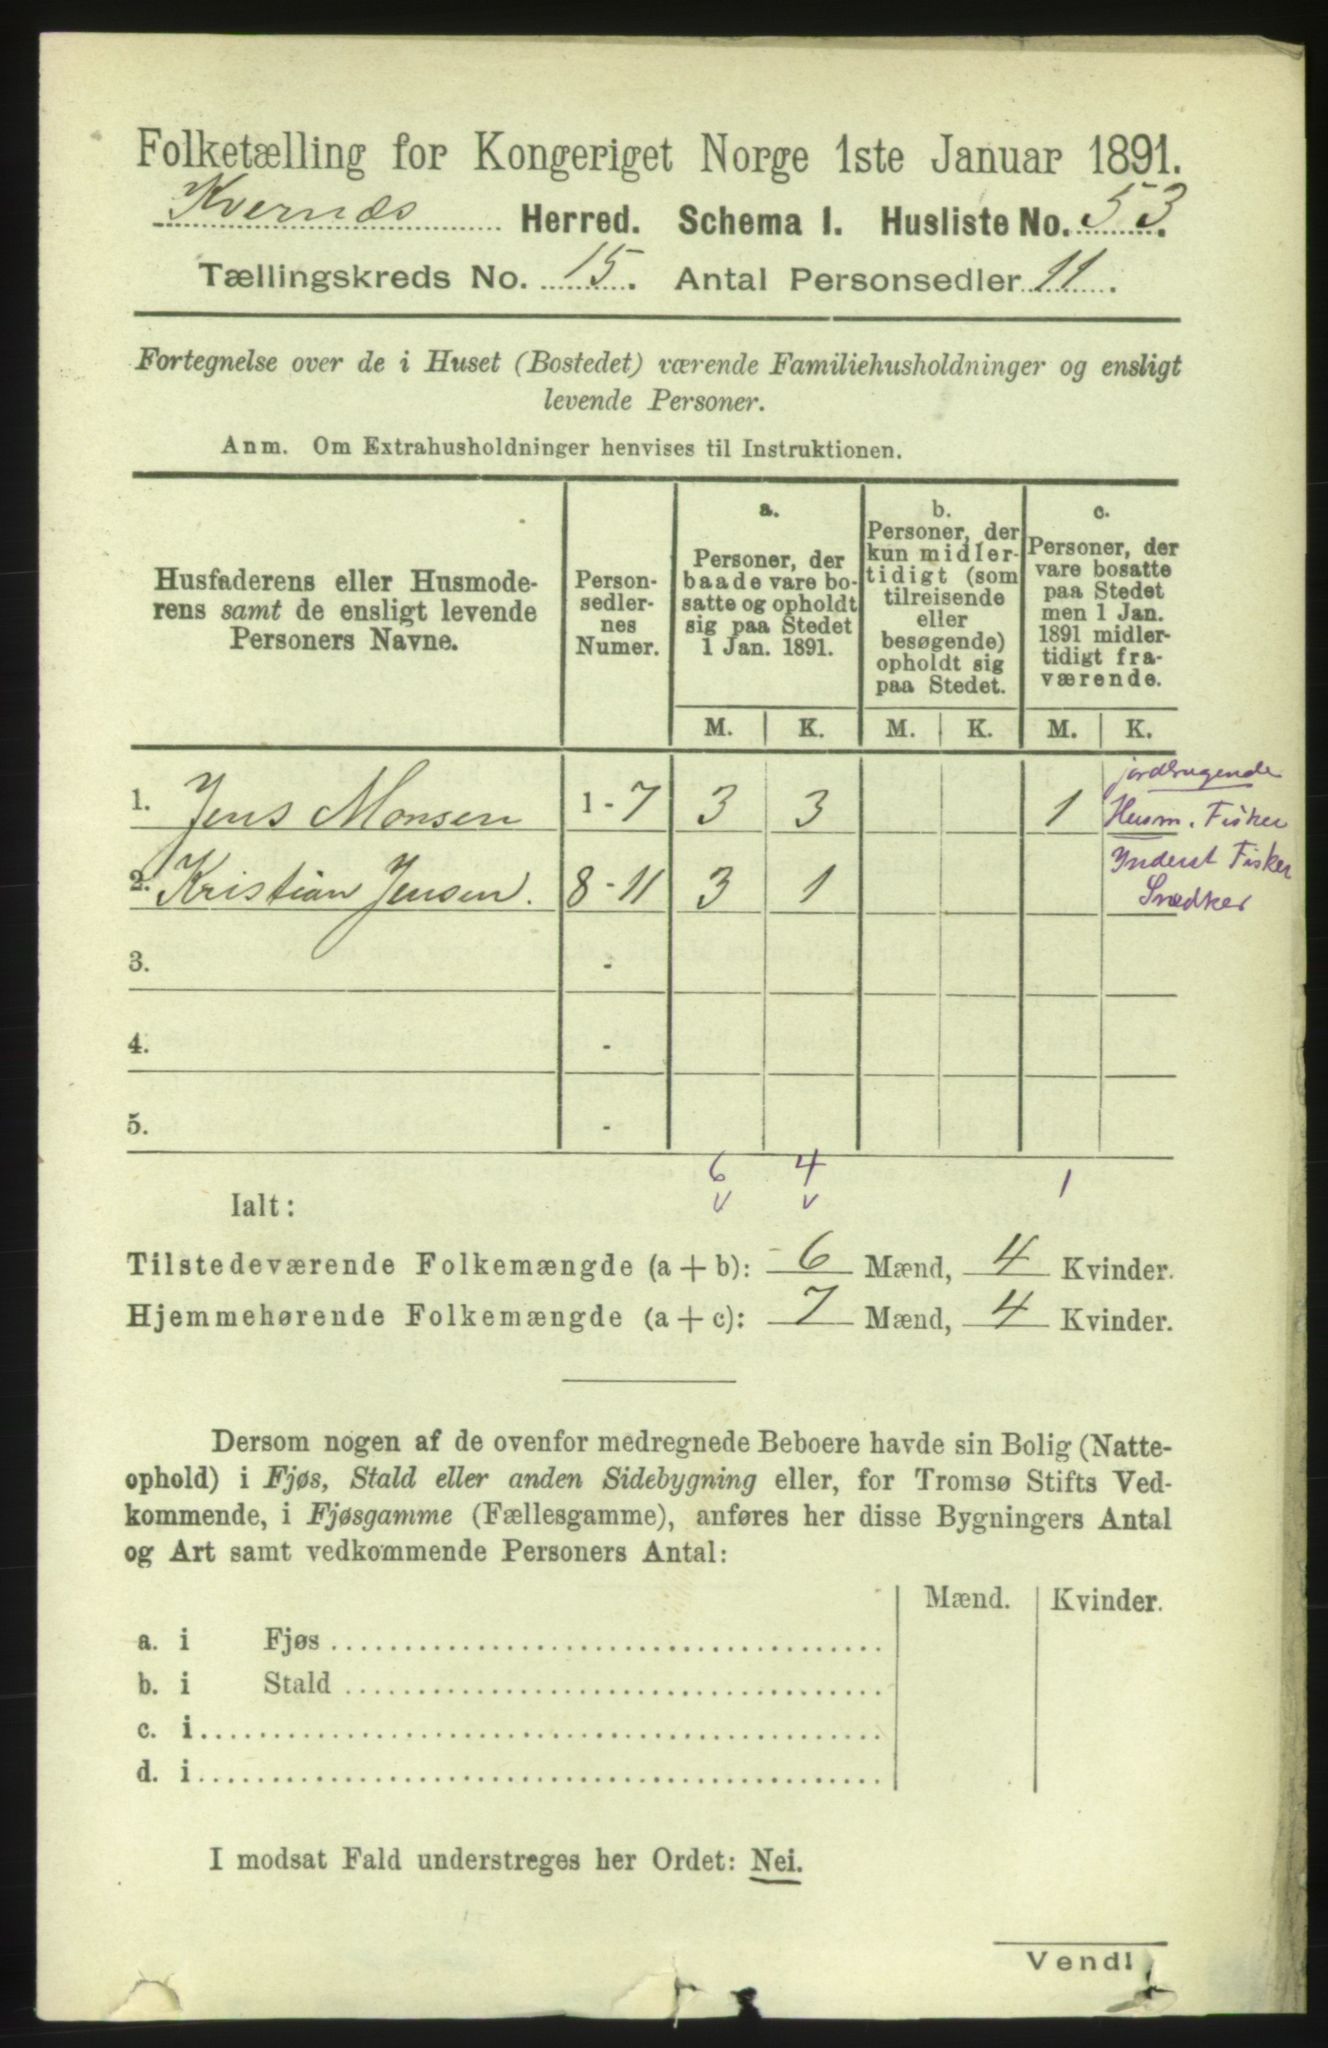 Folketælling for Kongeriget Norge 1ste Januar 1891.
Kvernæs Herred. Schema I. Husliste No. 53.
Tællingskreds No. 15. Antal Personsedler 11.
Fortegnelse over de i Huset (Bostedet) værende Familiehusholdninger og ensligt
levende Personer.
Anm. Om Extrahusholdninger henvises til Instruktionen.
Husfaderens eller Husmode-
rens samt de ensligt levende
Personers Navne.
Person-
sedler-
nes
Numer.
a.
Personer, der
baade vare bo-
satte og opholdt
sig paa Stedet
1 Jan. 1891.
b.
Personer, der
kun midler-
tidigt (som
tilreisende
eller
besøgende)
opholdt sig
paa Stedet.
c.
Personer, der
vare bosatte
paa Stedet
men 1 Jan.
1891 midler-
tidigt fra-
værende.
M. K. M. K. M. K.
jordbrugende
1. Jens Monsen 1-7 3 3 1 Husm. Fisker
2. Kristian Jensen. 8-11 3 1 Inderst Fisker
Snedker
3. -
4. -
5. -
6 4 1
v v
Ialt:
Tilstedeværende Folkemængde (a + b): 6 Mænd, 4 Kvinder.
Hjemmehørende Folkemængde (a + c): 7 Mænd, 4 Kvinder.
Dersom nogen af de ovenfor medregnede Beboere havde sin Bolig (Natte-
ophold) i Fjøs, Stald eller anden Sidebygning eller, for Tromsø Stifts Ved-
kommende, i Fjøsgamme (Fællesgamme), anføres her disse Bygningers Antal
og Art samt vedkommende Personers Antal:
Mænd. Kvinder.
a. i Fjøs
b. i Stald
c. i
d. i
I modsat Fald understreges her Ordet: Nei.
Vend!